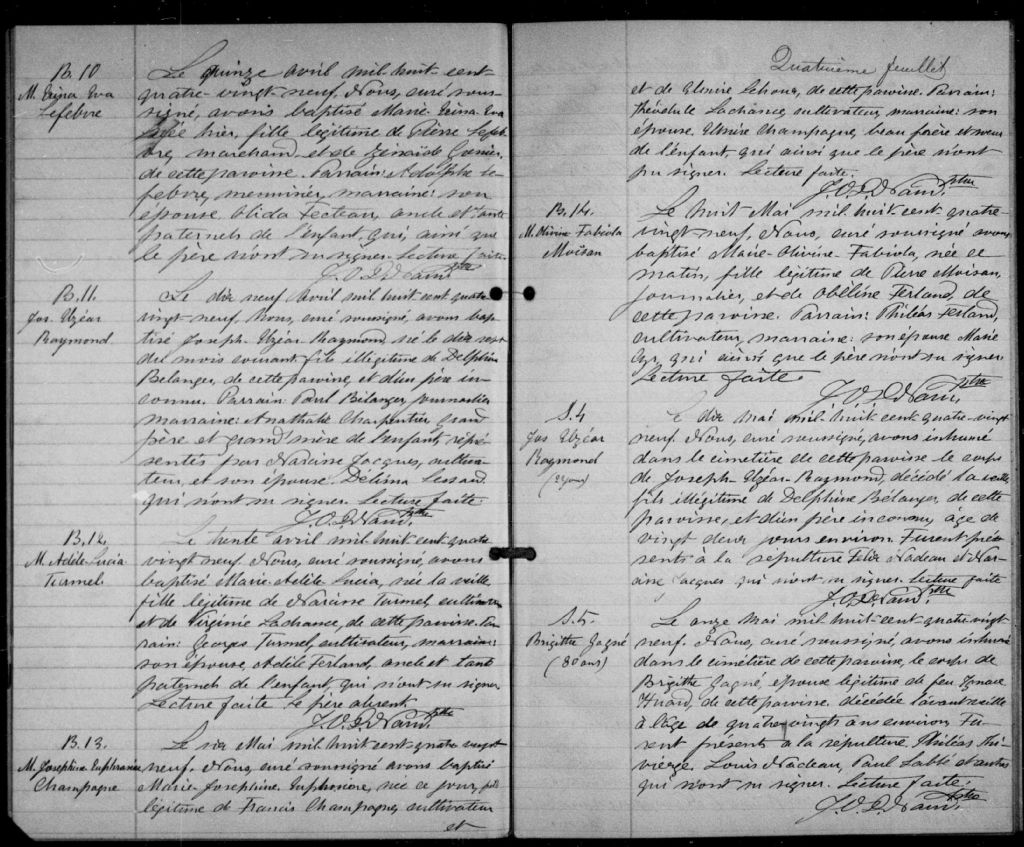 B. 10
M. Exina Eva
Lefebvre
Le quinze avril mil-huit-cent-
quatre-vingt-neuf. Nous, curé sous-
signé, avons baptisé Marie-Exina-Eva
née hier, fille légitime de Lefeb-
vre, marchand, et de Zénaïde Grenier,
de cette paroisse. Parrain: Adolphe Le-
febvre, menuisier, marraine: son
épouse Olida Fecteau, oncle et tante
paternels de l'enfant, qui, ainsi que
le père n'ont su signer. Lecture faite.
Ptre
B. 11.
Jos. Elzéar
Raymond
Le dix neuf avril mil huit cent quatre
vingt-neuf. Nous, curé soussigné, avons bap-
tisé Joseph-Elzéar-Raymond, né le dix sept
du mois courant, fils illégitime de Delphine
Bélanger, de cette paroisse, et d'un père in-
connu. Parrain: Paul Bélanger, journalier
marraine: Anathalie Charpentier, grand
père et grand'mère de l'enfant, repré-
sentés par Narcisse Jacques, cultiva-
teur, et son épouse, Délima Lessard
qui n'ont su signer. Lecture faite.
Ptre
B. 12.
M. Adèle Lucia
Turmel
Le trente avril mil huit cent quatre
vingt neuf, Nous, curé soussigné, avons
baptisé Marie-Adèle Lucia, née la veille
fille légitime de Narcisse Turmel, cultivateur
et de Virginie Lachance, de cette paroisse. Par-
rain: Georges Turmel, cultivateur, marraine:
son épouse, Adèle Ferland, oncle et tante
paternels de l'enfant, qui n'ont su signer
Lecture faite. Le père absent.
Ptre
B. 13.
M. Josephine Euphrosine
Champagne
Le six Mai mil huit cent-quatre vingt
neuf. Nous, curé soussigné avons baptisé
Marie-Josephine Euphrosine, née ce jour, fille
légitime de Francis Champagne, cultivateur
et
Quatrième feuillet
et de Elmire, de cette paroisse. Parrain:
Théodule Lachance, cultivateur, marraine: son
épouse Elmire Champagne, beau frère et soeur
de l'enfant, qui ainsi que le père n'ont
pu signer. Lecture faite.
Ptre
B. 14.
M. Olivine Fabiola
Moisan
Le huit Mai mil huit cent quatre-
vingt neuf. Nous, curé soussigné avons
baptisé Marie-Olivine Fabiola, née ce
matin, fille légitime de Pierre Moisan,
journalier, et de Obéline Ferland, de
cette paroisse. Parrain: Philéas Ferland,
cultivateur, marraine: son épouse Marie
Cyr, qui ainsi que le père n'ont su signer
Lecture faite.
Ptre
S. 4
Jos Elzéar
Raymond
(22 jours)
Le dix mai mil-huit cent-quatre-vingt
neuf. Nous, curé soussigné, avons inhumé
dans le cimetière de cette paroisse le corps
de Joseph-Elzéar-Raymond, décédé la veille
fils illégitime de Delphine Bélanger, de cette
paroisse, et d'un père inconnu, âgé de
vingt deux jours environ. Furent pré-
sents à la sépulture Félix Nadeau et Nar-
cisse Jacques qui n'ont su signer. Lecture faite
Ptre
S. 5.
Brigitte Gagné
(80 ans)
Le onze Mai mil huit-cent-quatre vingt-
neuf. Nous, curé soussigné, avons inhumé
dans le cimétière de cette paroisse, le corps de
Brigitte Gagné epouse légitime de feu Ignace
Huard, de cette paroisse, décédée l'avant veille
à l'âge de quatre-vingts ans environ. Fu-
rent présents à la sépulture, Philéas Thi-
vierge, Louis Nadeau, Paul Labbé et autres
qui n'ont su signer. Lecture faite.
Ptre